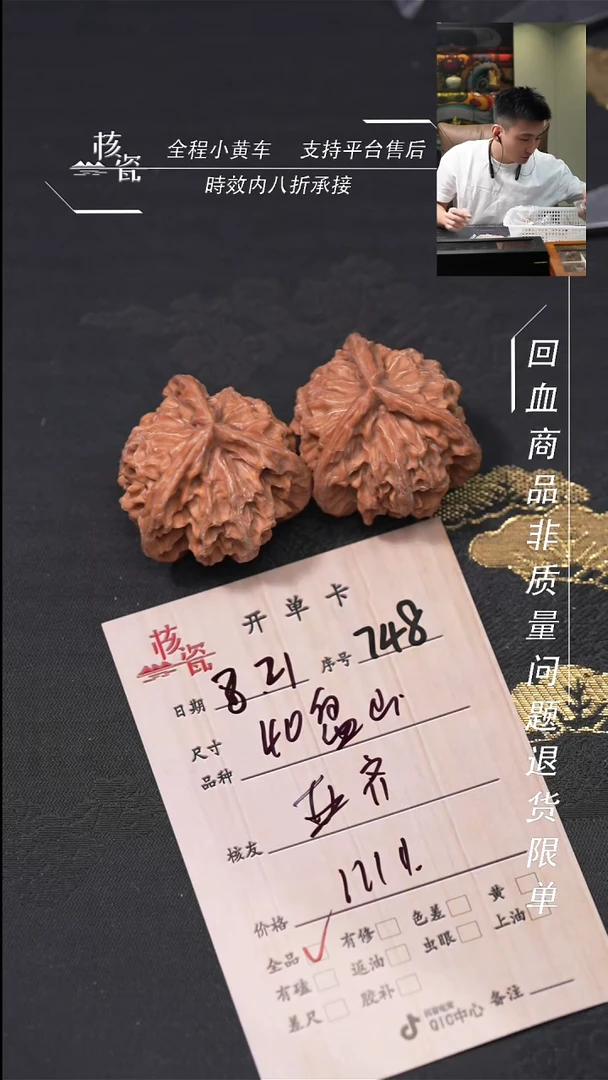 核瓷
全程小黄车 支持平台售后
時效内八折承接
回血商品非质量问题退货限单
核瓷
开单卡
日期 8.21 序号 748
尺寸 40盘山
品种
核友
价格
全品 有修 色差 黄
有磕 返油 虫眼 上油
差尺 胶补
抖音电商
QIC中心 备注